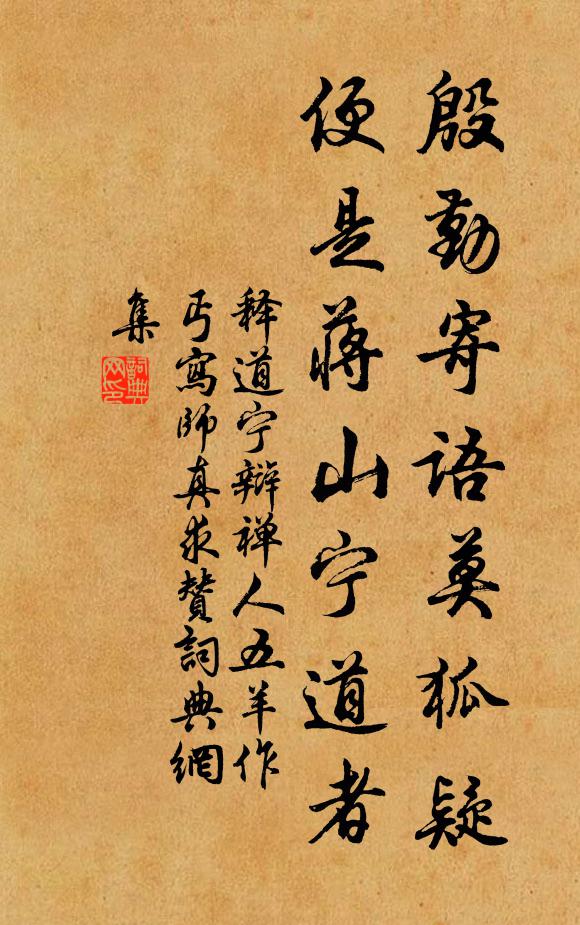 殷勤寄语莫狐疑
便是蒋山宁道者
释道宁辩禅人五羊作
丐寫師真求贊詞典網
集
詞典
网印